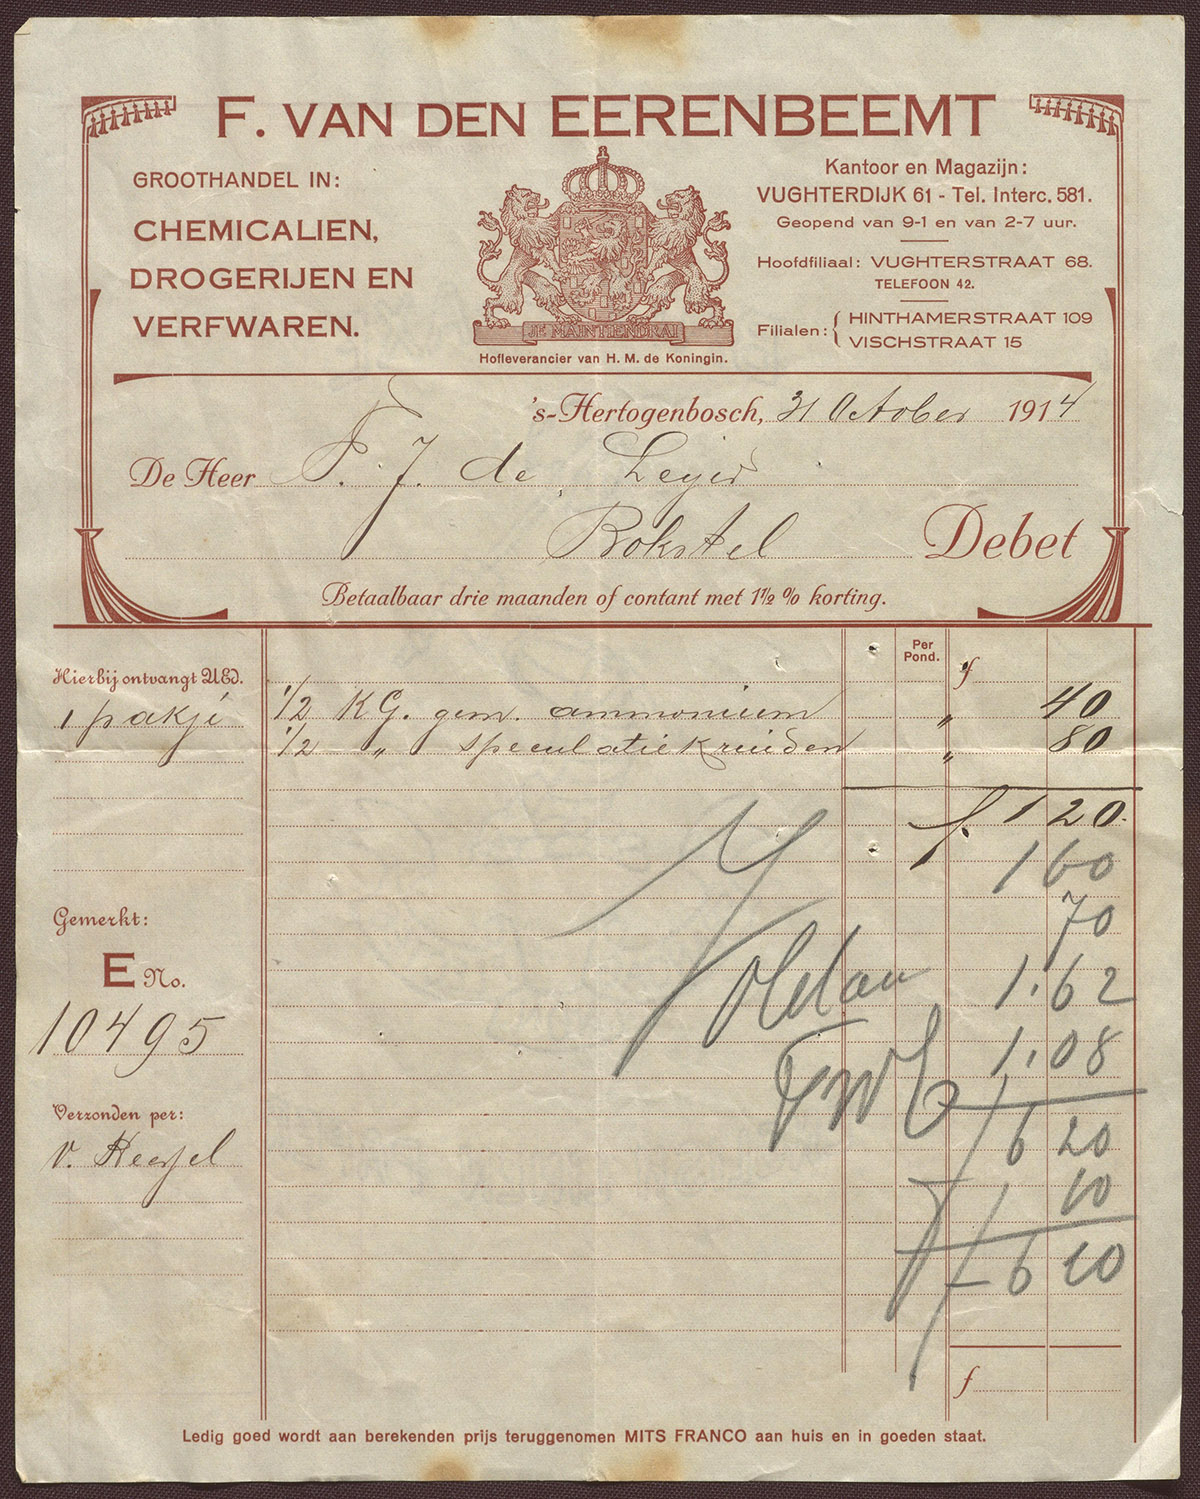 F. VAN DEN EERENBEEMT
GROOTHANDEL IN:
CHEMICALIEN,
DROGERIJEN EN
VERFWAREN.
JE MAINTIENDRAI
Hofleverancier van H. M. de Koningin.
Kantoor en Magazijn:
VUGHTERDIJK 61 - Tel. Interc. 581.
Geopend van 9-1 en van 2-7 uur.
Hoofdfiliaal: VUGHTERSTRAAT 68.
TELEFOON 42.
Filialen: { HINTHAMERSTRAAT 109
VISCHSTRAAT 15
's-Hertogenbosch, 31 October 1914
De Heer F. J. de
Bokstel Debet
Betaalbaar drie maanden of contant met 1 1/2 % korting.
Per
Pond. f
Hierbij ontvangt UEd.
1 pakje
1/2 KG. gem. ammonium " 40
1/2 " speculatiekruiden " 80
f. 1 20.
1 60
70
1.62
1.08
6 20
10
6 10
Voldaan
Gemerkt:
E No.
10495
Verzonden per:
v.
f
Ledig goed wordt aan berekenden prijs teruggenomen MITS FRANCO aan huis en in goeden staat.